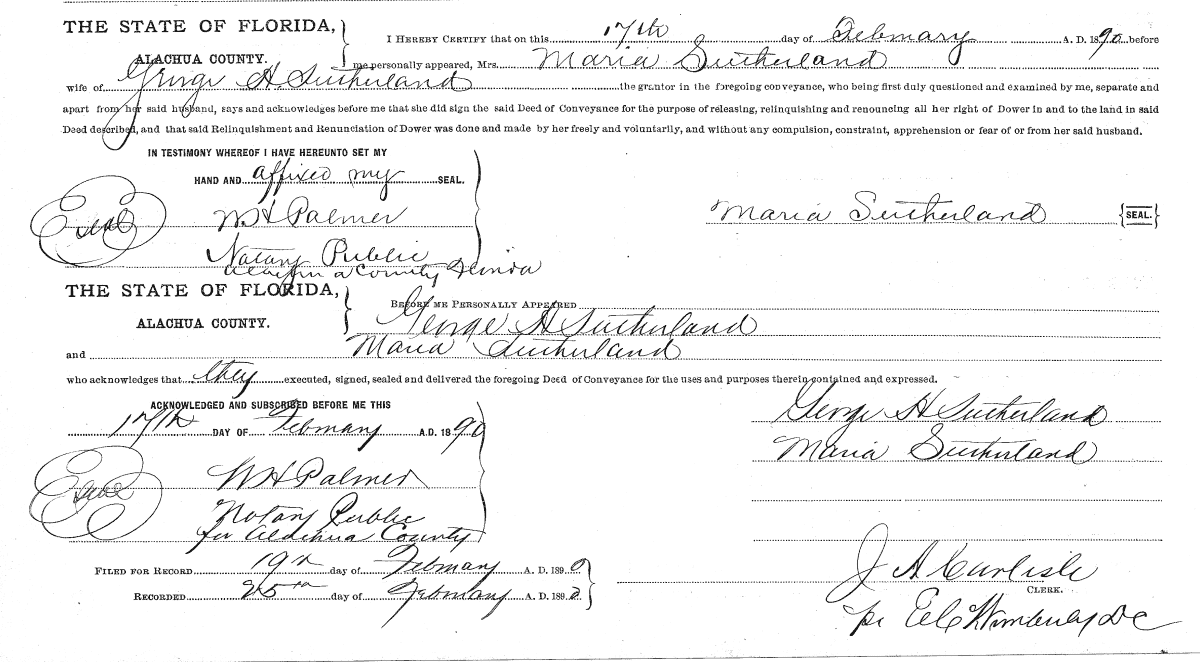 THE STATE OF FLORIDA,
ALACHUA COUNTY.
I HEREBY CERTIFY that on this 17th day of February A. D. 1890 before
me personally appeared, Mrs. Maria Sutherland
wife of George H Sutherland the grantor in the foregoing conveyance, who being first duly questioned and examined by me, separate and
apart from her said husband, says and acknowledges before me that she did sign the said Deed of Conveyance for the purpose of releasing, relinquishing and renouncing all her right of Dower in and to the land in said
Deed described, and that said Relinquishment and Renunciation of Dower was done and made by her freely and voluntarily, and without any compulsion, constraint, apprehension or fear of or from her said husband.
IN TESTIMONY WHEREOF I HAVE HEREUNTO SET MY
HAND AND affixed my SEAL.
Seal
W H Palmer
Maria Sutherland {SEAL.}
Notary Public
Alachua County Florida
THE STATE OF FLORIDA,
ALACHUA COUNTY.
BEFORE ME PERSONALLY APPEARED
George H Sutherland
and Maria Sutherland
who acknowledges that they executed, signed, sealed and delivered the foregoing Deed of Conveyance for the uses and purposes therein contained and expressed.
ACKNOWLEDGED AND SUBSCRIBED BEFORE ME THIS
17th DAY OF February A.D. 1890
George H Sutherland
Maria Sutherland
Seal
W H Palmer
Notary Public
for Alachua County
FILED FOR RECORD 19th day of February A. D. 1890
RECORDED 25th day of February A. D. 1890
J A Carlisle
CLERK.
pr DC